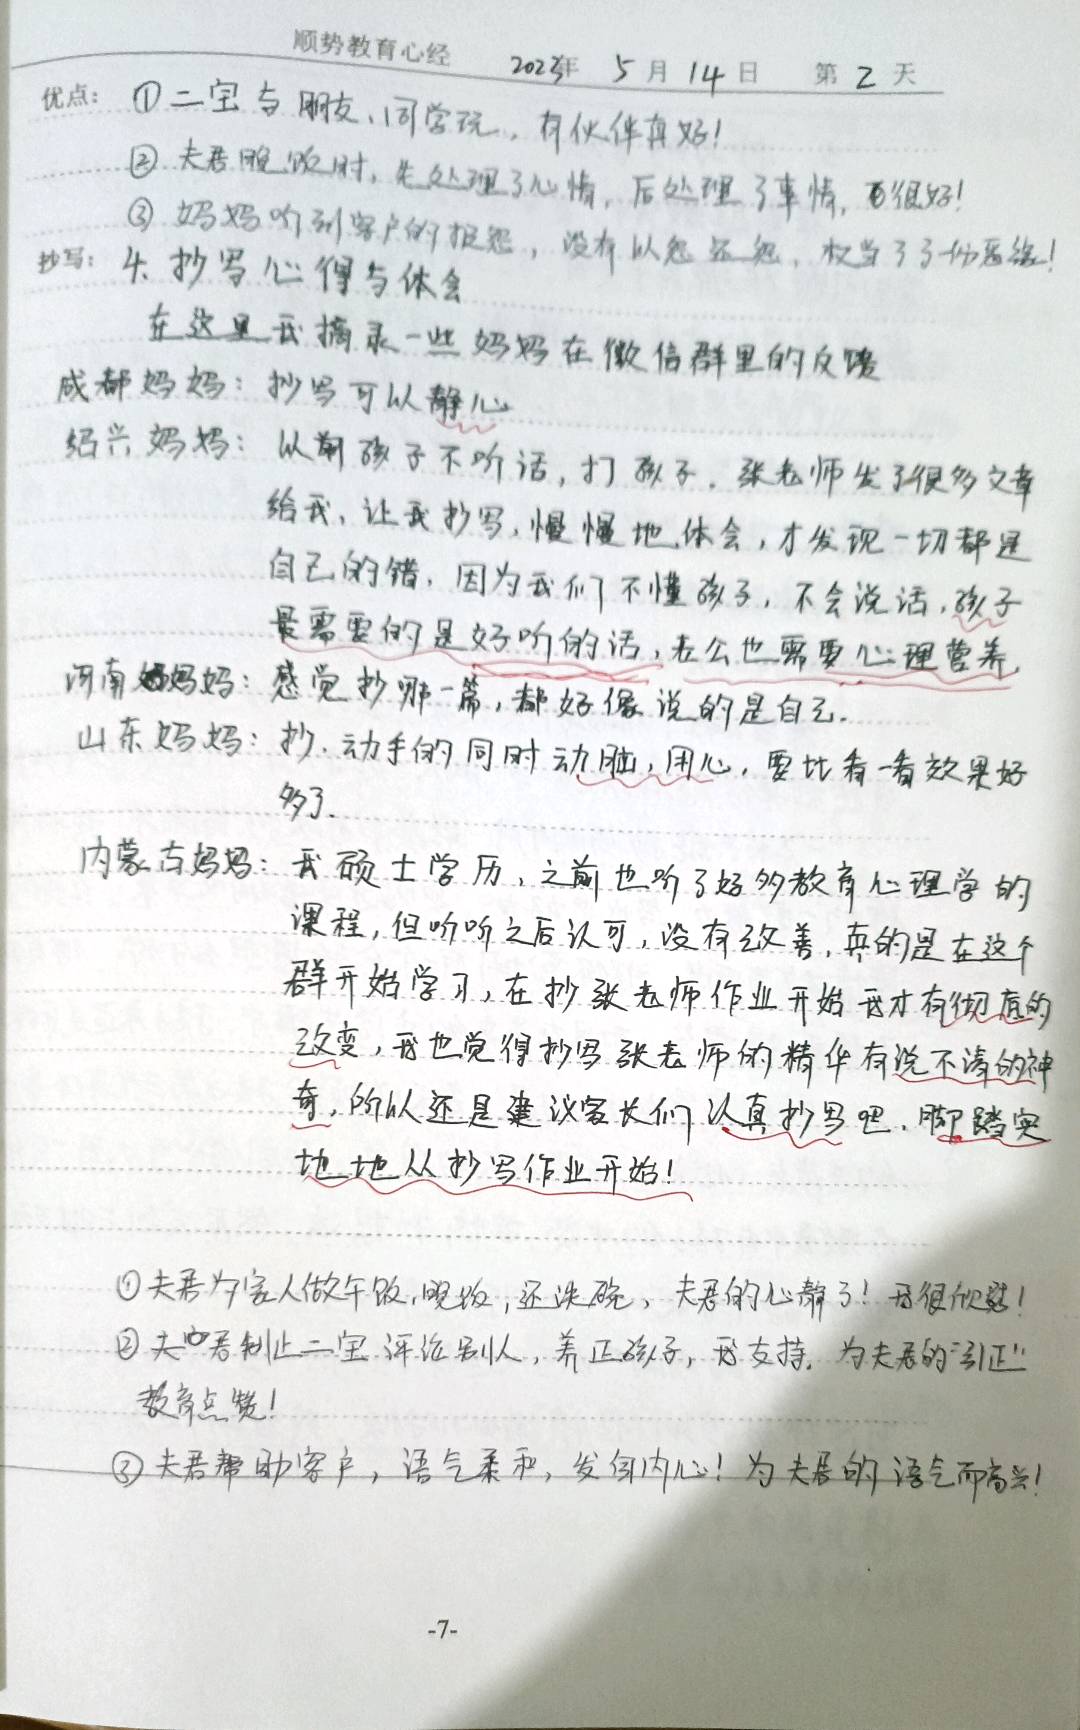 顺势教育心经 2023年 5月14日 第2天
优点: ①二宝与朋友、同学玩，有伙伴真好!
②夫君晚饭时，先处理了心情，后处理了事情，很好!
③妈妈听到客户的报怨，没有以怨还怨，权当了了一份恶缘!
抄写: 4. 抄写心得与体会
在这里我摘录一些妈妈在微信群里的反馈
成都妈妈: 抄写可以静心
绍兴妈妈: 从前孩子不听话，打孩子. 张老师发了很多文章
给我、让我抄写，慢慢地体会，才发现一切都是
自己的错，因为我们不懂孩子，不会说话，孩子
最需要的是好听的话，老公也需要心理营养.
河南妈妈: 感觉抄哪一篇，都好像说的是自己.
山东妈妈: 抄. 动手的同时动脑，用心，要比看一看效果好
多了.
内蒙古妈妈: 我硕士学历，之前也听了好多教育心理学的
课程，但听听之后认可，没有改善，真的是在这个
群开始学习，在抄张老师作业开始我才有彻底的
改变，我也觉得抄写张老师的精华有说不清的神
奇，所以还是建议家长们认真抄写吧、脚踏实
地地从抄写作业开始!
①夫君为家人做午饭，晚饭，还洗碗、夫君的心静了! 我很欣慰!
②夫君制止二宝评论别人，养正孩子，我支持. 为夫君的“引正”
教育点赞!
③夫君帮助客户，语气柔和，发自内心! 为夫君的语气而高兴!
-7-